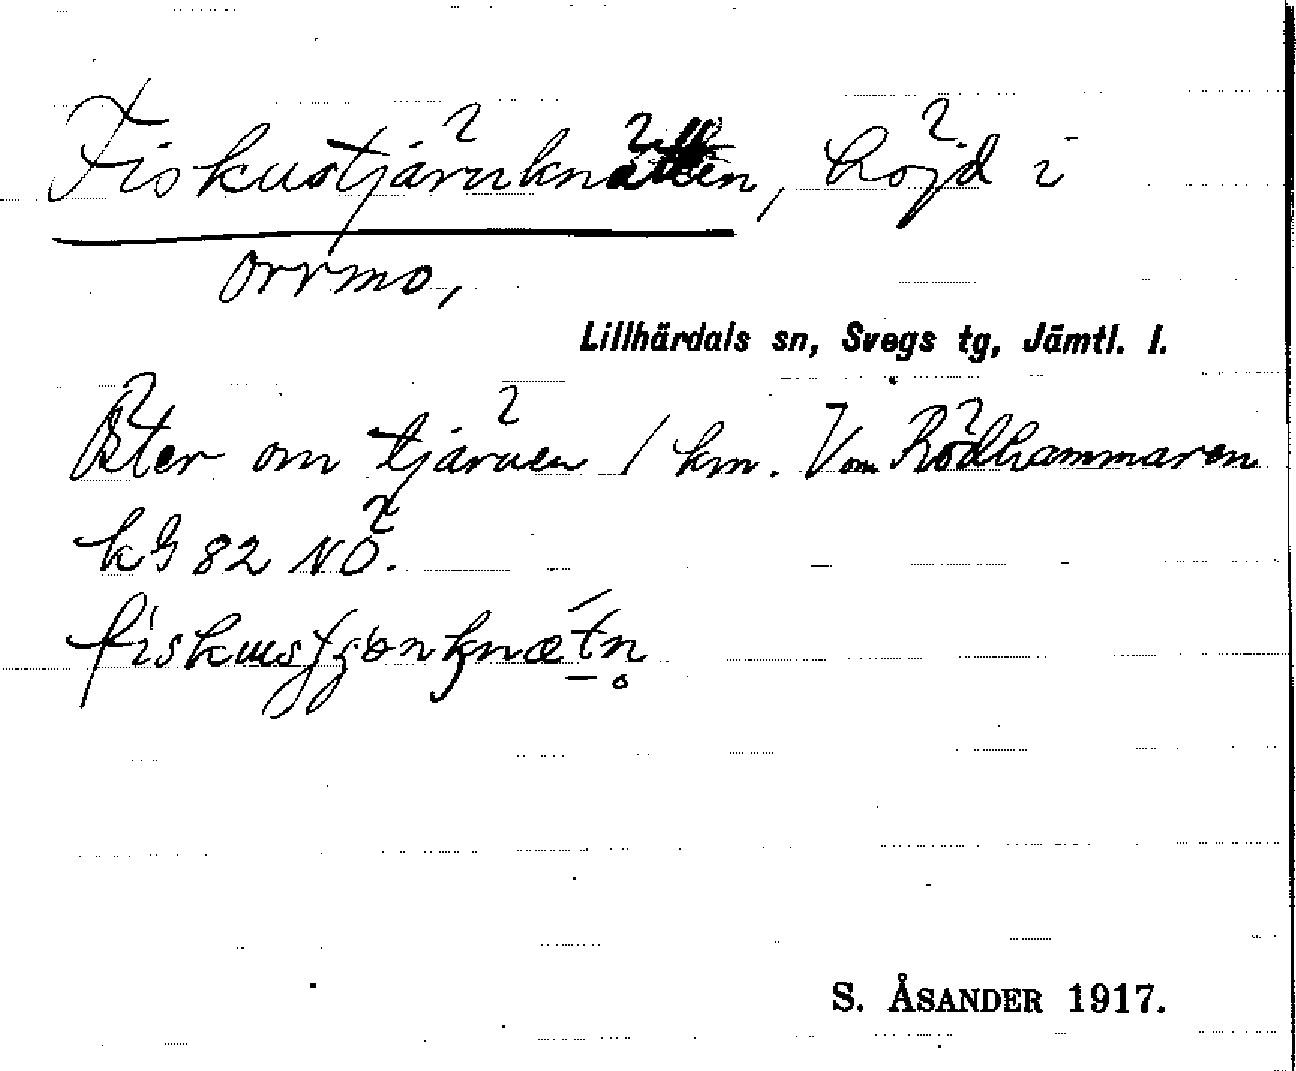 Fiskustjärnknätten, höjd i
Orrmo,
Lillhärdals sn, Svegs tg, Jämtl. l.
Öster om tjärnen 1 km. V om Rödhammaren
kG 82 NÖ.
S. ÅSANDER 1917.